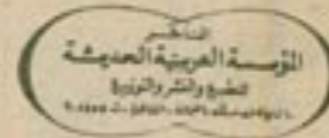 الناشر
المؤسسة العربية الحديثة
للطبع والنشر والتوزيع